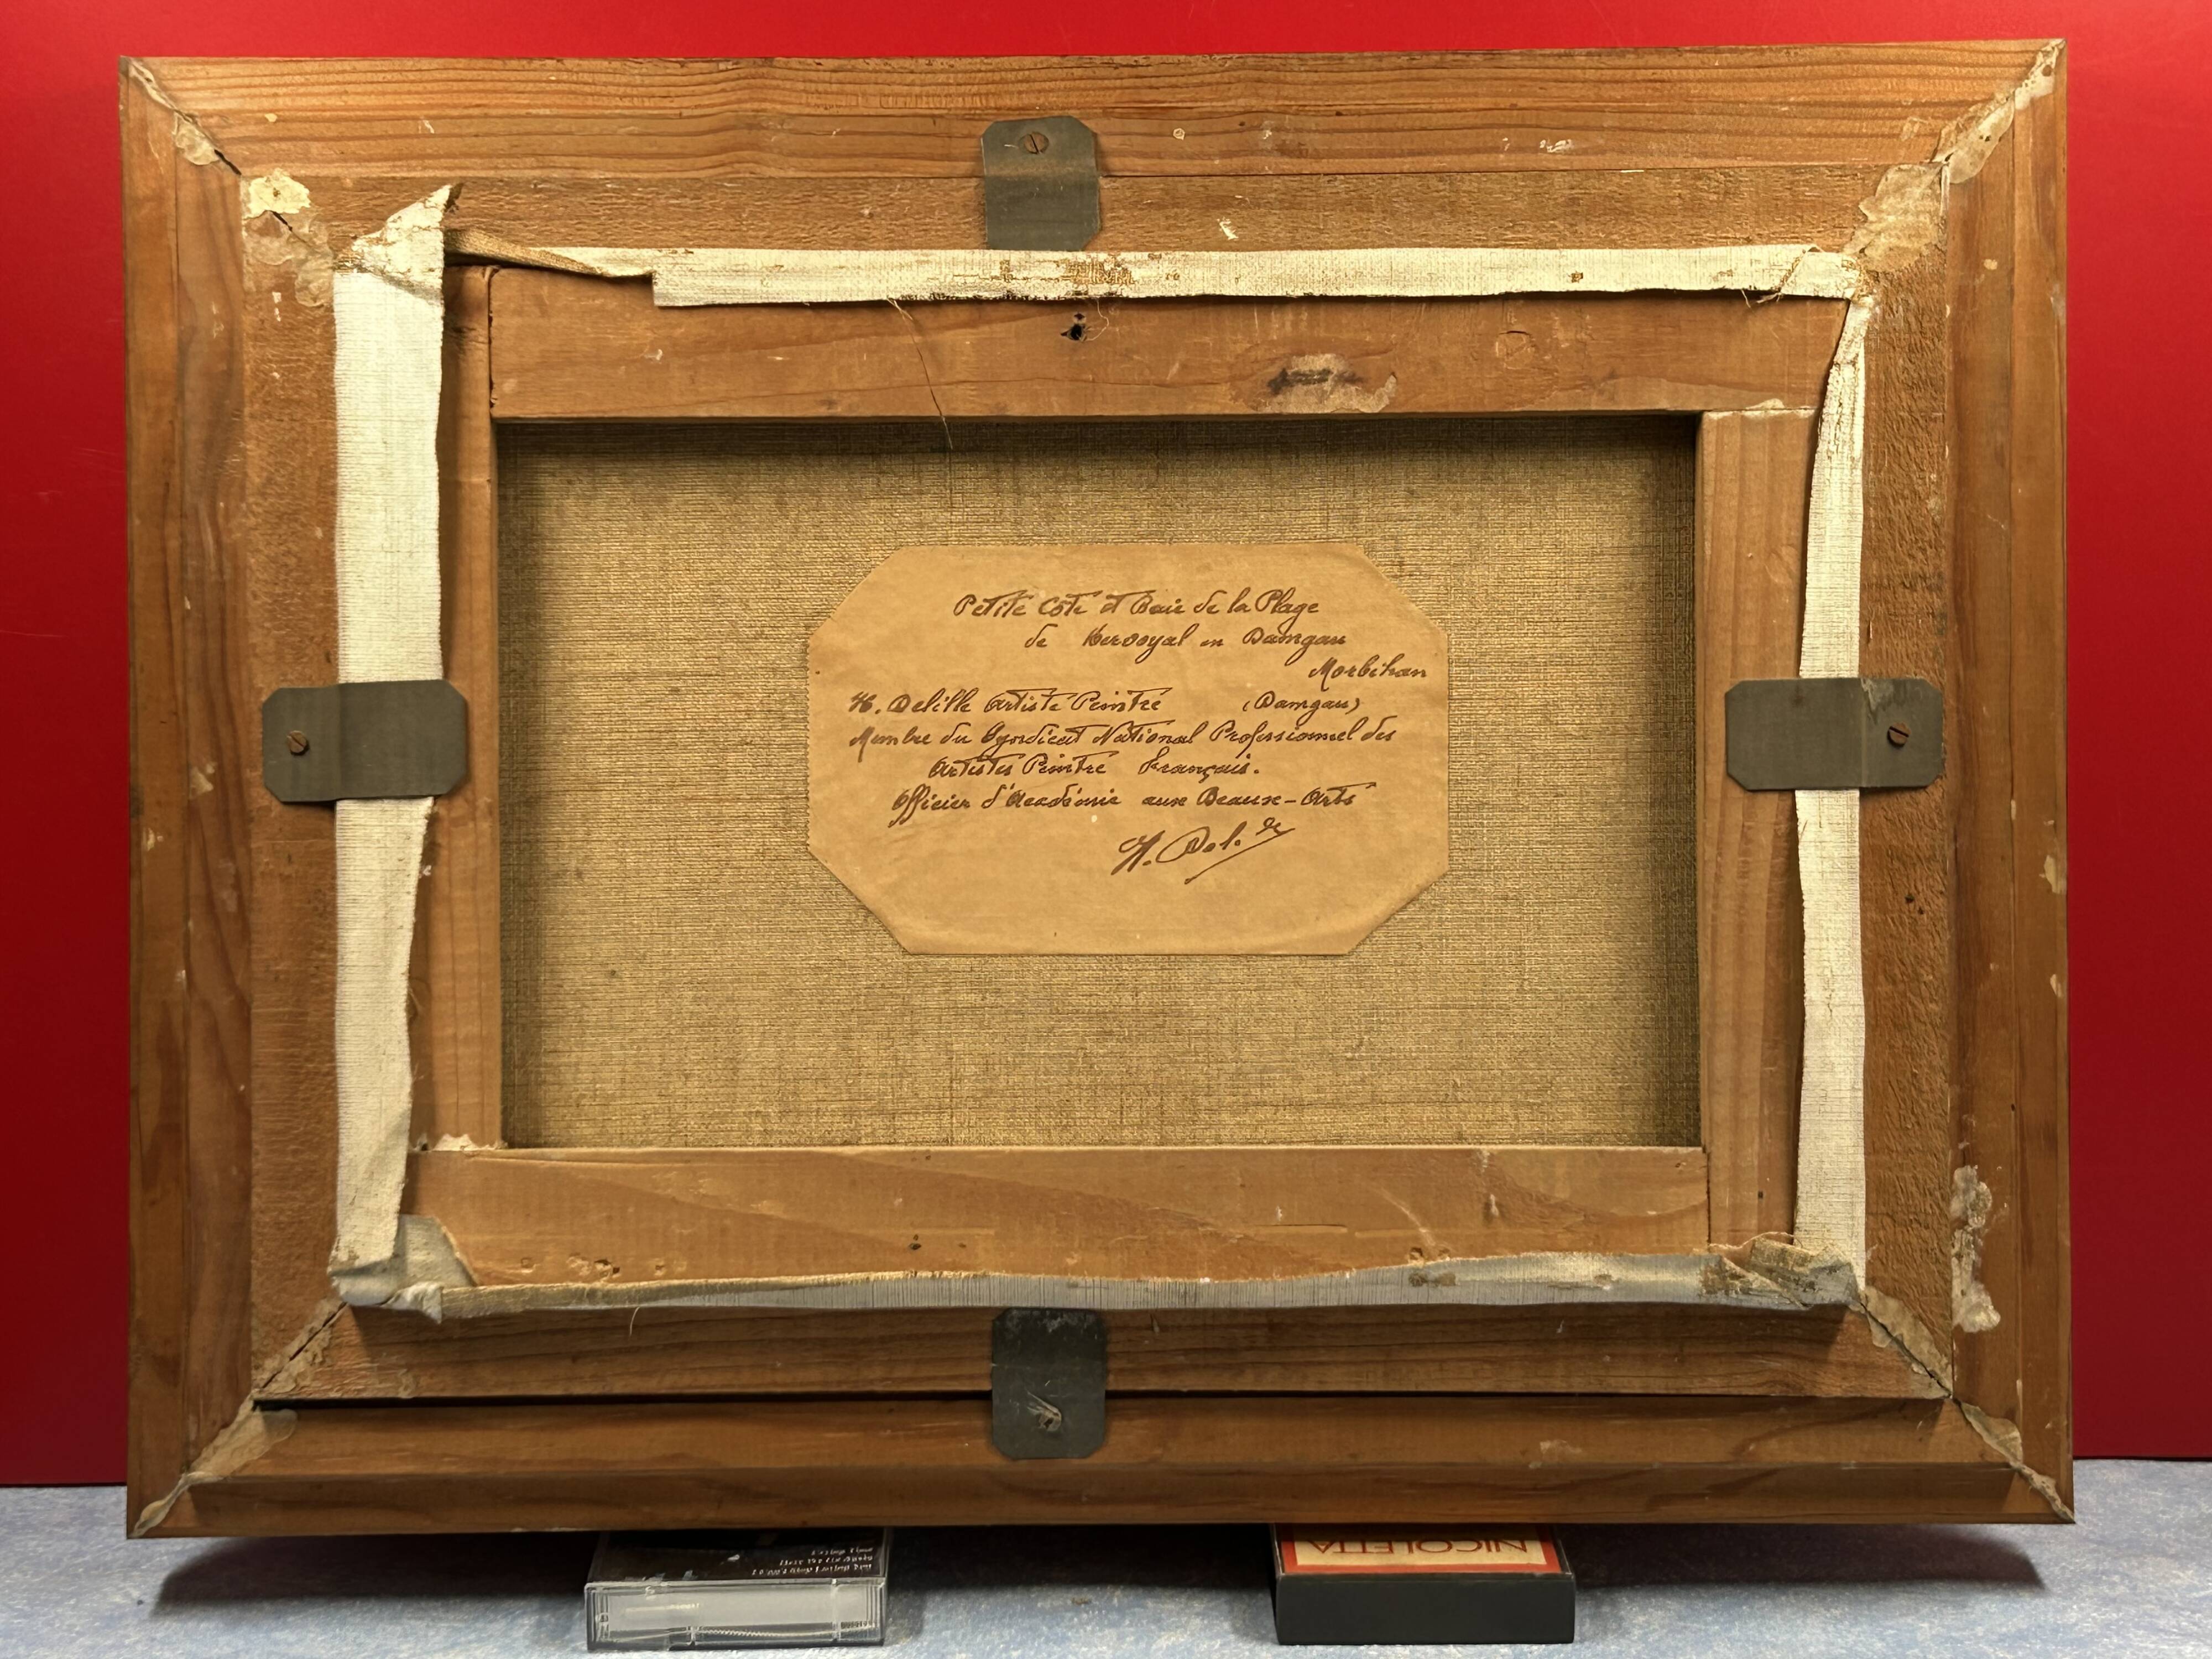 Petite Côte et Baie de la Plage
de Kervoyal en Damgan
Morbihan
H. Delille Artiste Peintre (Damgan)
Membre du Syndicat National Professionnel des
Artistes Peintre Français.
Officier d'Académie aux Beaux-Arts
H. Del.
NICOLETTA